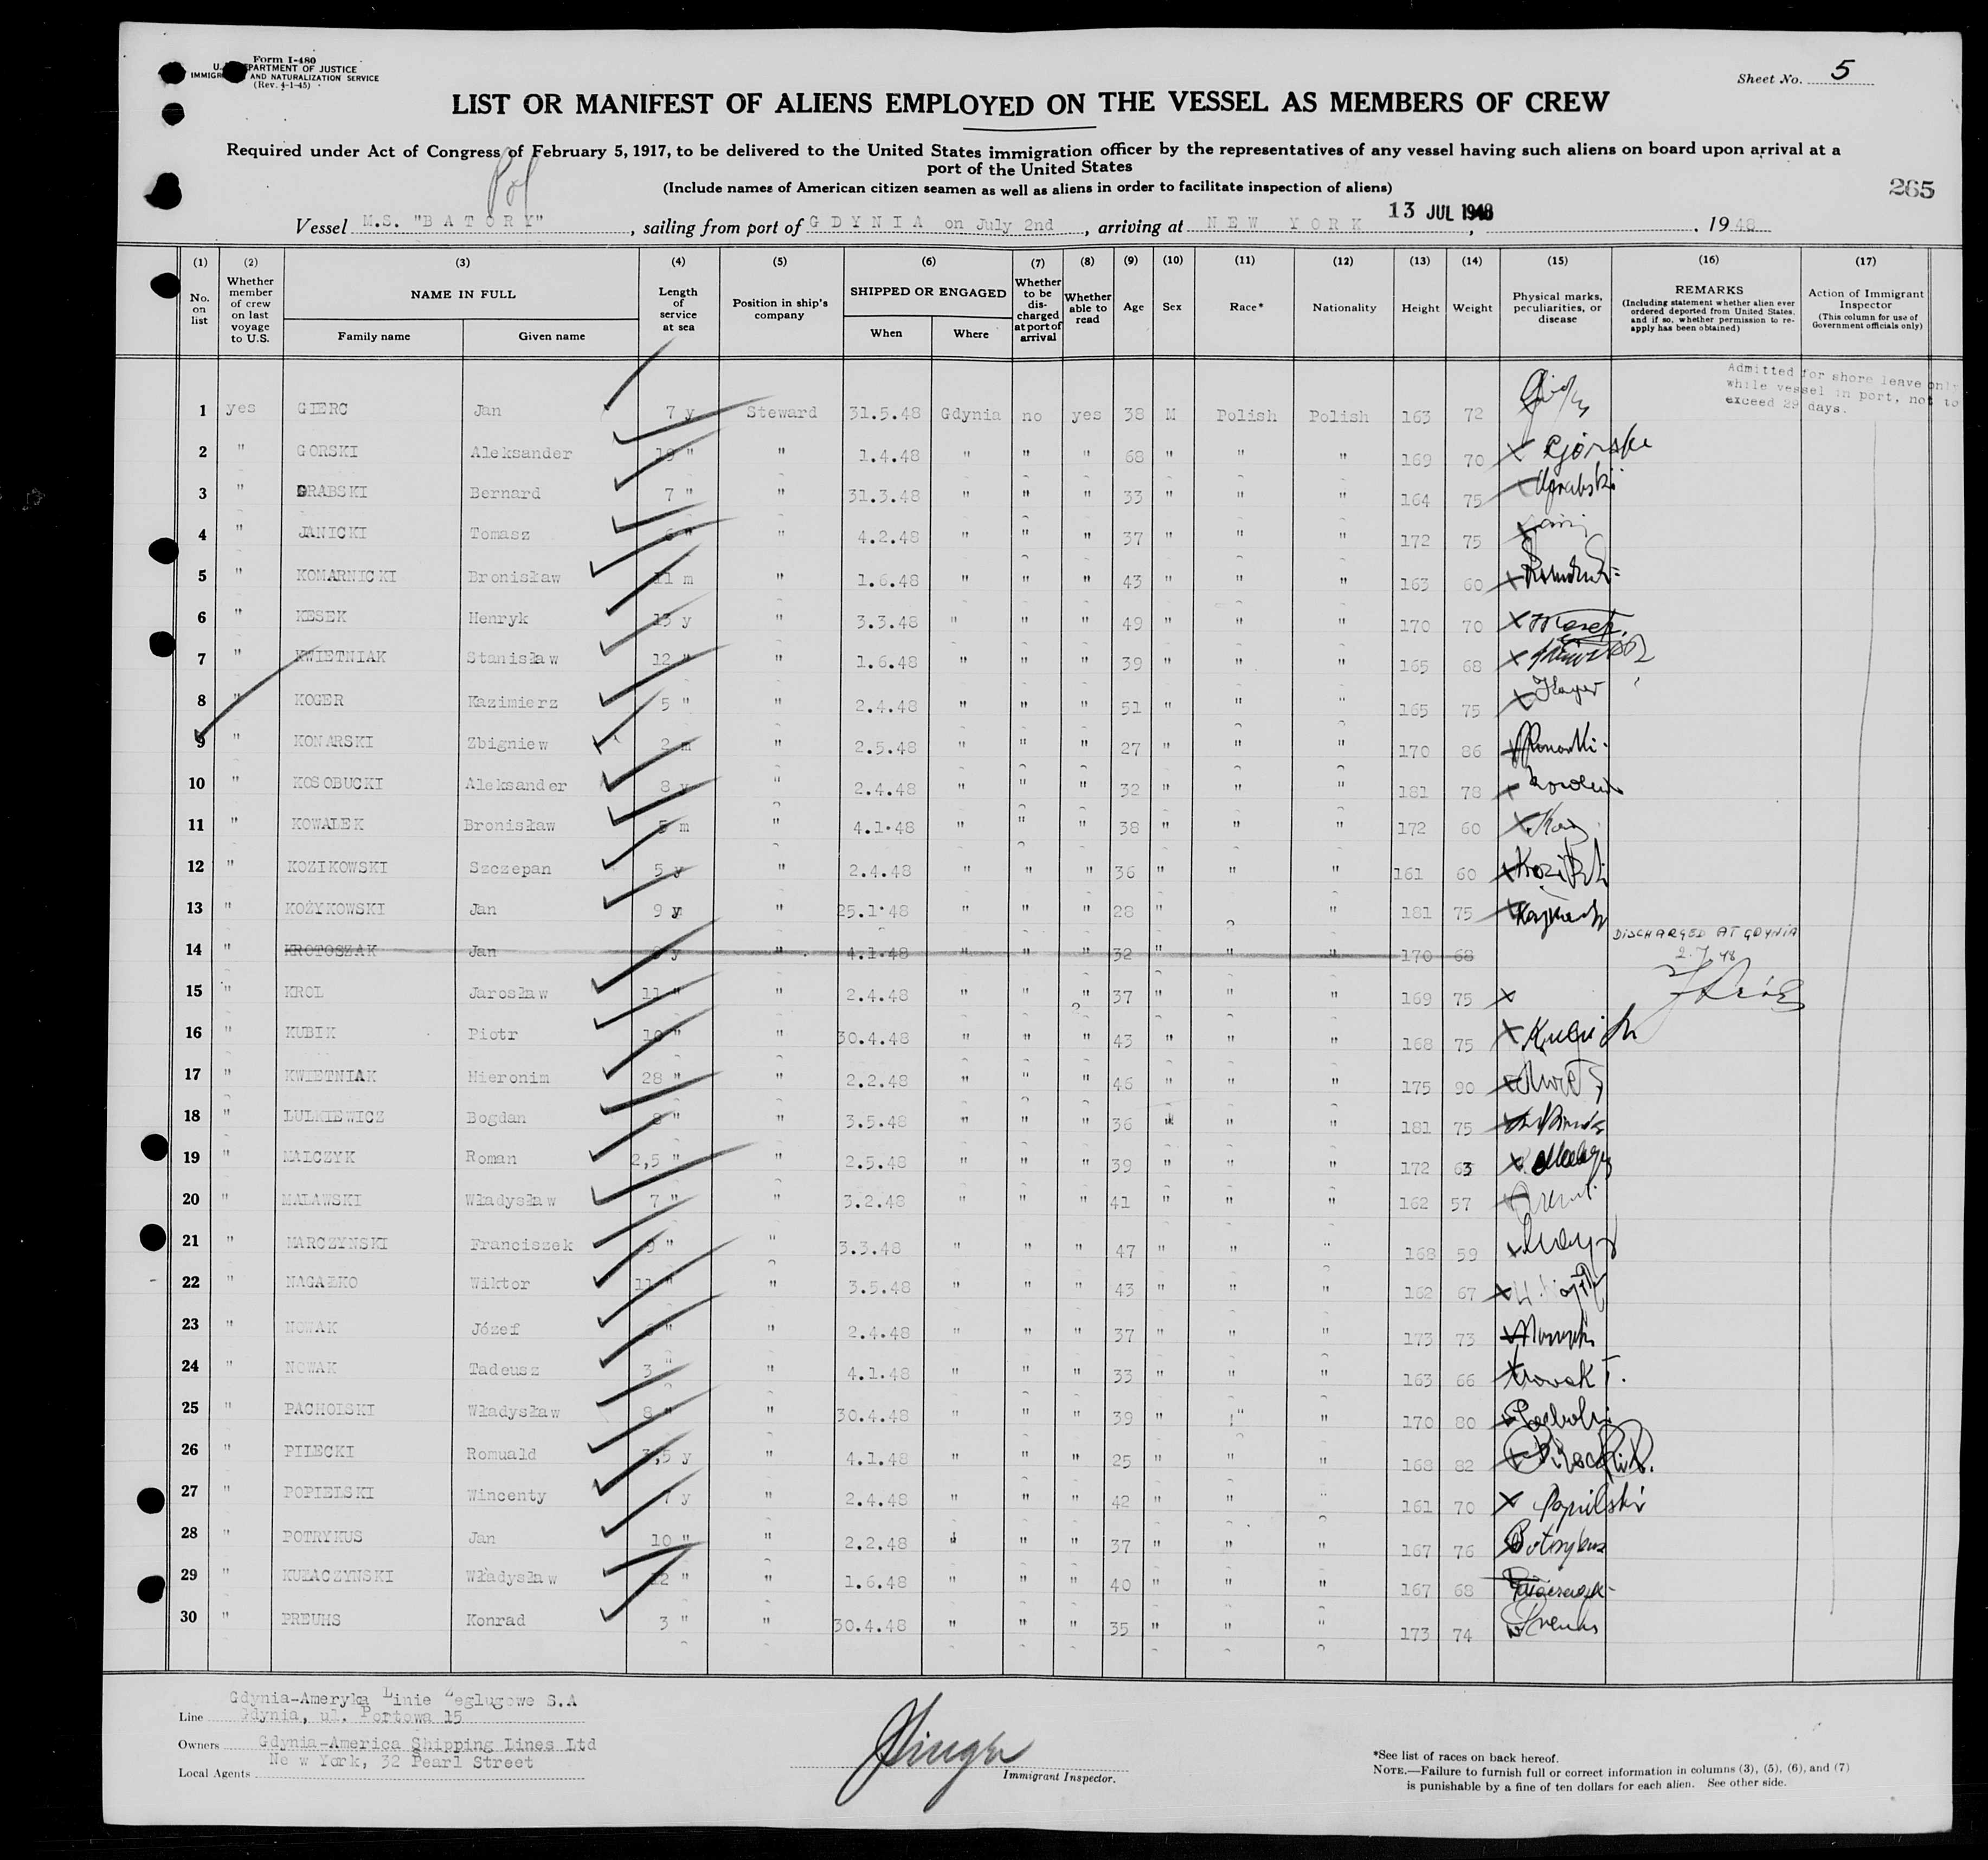 Form I-480
U. DEPARTMENT OF JUSTICE
IMMIGR AND NATURALIZATION SERVICE
(Rev. 4-1-45)
Sheet No. 5
LIST OR MANIFEST OF ALIENS EMPLOYED ON THE VESSEL AS MEMBERS OF CREW
Required under Act of Congress of February 5, 1917, to be delivered to the United States immigration officer by the representatives of any vessel having such aliens on board upon arrival at a
port of the United States
(Include names of American citizen seamen as well as aliens in order to facilitate inspection of aliens)
Pol
265
Vessel M.S. "B A T O R Y", sailing from port of G D Y N I A on July 2nd, arriving at N E W Y O R K 13 JUL 1948, 1948
(1) (2) (3) (4) (5) (6) (7) (8) (9) (10) (11) (12) (13) (14) (15) (16) (17)
No. on list
Whether member of crew on last voyage to U.S.
NAME IN FULL
Family name
Given name
Length of service at sea
Position in ship's company
SHIPPED OR ENGAGED
When
Where
Whether to be discharged at port of arrival
Whether able to read
Age
Sex
Race*
Nationality
Height
Weight
Physical marks, peculiarities, or disease
REMARKS
(Including statement whether alien ever ordered deported from United States, and if so, whether permission to re-apply has been obtained)
Action of Immigrant Inspector
(This column for use of Government officials only)
Admitted for shore leave only
while vessel in port, not to
exceed 29 days.
1 yes GIERC Jan 7 y Steward 31.5.48 Gdynia no yes 38 M Polish Polish 163 72
2 " GORSKI Aleksander " " 1.4.48 " " " 68 " " " 169 70 Górski
3 " GRABSKI Bernard 7 " " 31.3.48 " " " 33 " " " 164 75 Grabski
4 " JANICKI Tomasz 6 " " 4.2.48 " " " 37 " " " 172 75
5 " KOMARNICKI Bronisław 11 m " 1.6.48 " " " 43 " " " 163 60
6 " KESEK Henryk 13 y " 3.3.48 " " " 49 " " " 170 70
7 " KWIETNIAK Stanisław 12 " " 1.6.48 " " " 39 " " " 165 68
8 " KOGER Kazimierz 5 " " 2.4.48 " " " 51 " " " 165 75
9 " KONARSKI Zbigniew 2 m " 2.5.48 " " " 27 " " " 170 86
10 " KOSOBUCKI Aleksander 8 y " 2.4.48 " " " 32 " " " 181 78
11 " KOWALEK Bronisław 5 m " 4.1.48 " " " 38 " " " 172 60
12 " KOZIKOWSKI Szczepan 5 y " 2.4.48 " " " 36 " " " 161 60
13 " KOŻYKOWSKI Jan 9 y " 25.1.48 " " " 28 " " 181 75
14 " KROTOSZAK Jan y " 4.1.48 " " " 32 " " " 170 68 DISCHARGED AT GDYNIA
2.7.48
15 " KROL Jarosław 11 " " 2.4.48 " " " 37 " " " 169 75
16 " KUBIK Piotr 10 " " 30.4.48 " " " 43 " " " 168 75
17 " KWIETNIAK Hieronim 28 " " 2.2.48 " " " 46 " " " 175 90
18 " LULKIEWICZ Bogdan 8 " " 3.5.48 " " " 36 " " " 181 75
19 " MALCZYK Roman 2,5 " " 2.5.48 " " " 39 " " " 172 63
20 " MALAWSKI Władysław 7 " " 3.2.48 " " " 41 " " " 162 57
21 " MARCZYNSKI Franciszek 9 " " 3.3.48 " " " 47 " " " 168 59
22 " NAGAZKO Wiktor 11 " " 3.5.48 " " " 43 " " " 162 67
23 " NOWAK Józef " " 2.4.48 " " " 37 " " " 173 73
24 " NOWAK Tadeusz 3 " " 4.1.48 " " " 33 " " " 163 66 Nowak T.
25 " PACHOLSKI Władysław 8 " " 30.4.48 " " " 39 " " " 170 80
26 " PILECKI Romuald 3,5 y " 4.1.48 " " " 25 " " " 168 82
27 " POPIELSKI Wincenty 7 y " 2.4.48 " " " 42 " " " 161 70 Popielski
28 " POTRYKUS Jan 10 " " 2.2.48 " " " 37 " " " 167 76 Potrykus
29 " KUŁACZYNSKI Władysław 12 " " 1.6.48 " " " 40 " " " 167 68
30 " PREUHS Konrad 3 " " 30.4.48 " " " 35 " " " 173 74 Preuhs
Line Gdynia-Ameryka Linie Żeglugowe S.A
Gdynia, ul. Portowa 15
Owners Gdynia-America Shipping Lines Ltd
Local Agents Ne w York, 32 Pearl Street
Immigrant Inspector.
*See list of races on back hereof.
NOTE.—Failure to furnish full or correct information in columns (3), (5), (6), and (7)
is punishable by a fine of ten dollars for each alien. See other side.